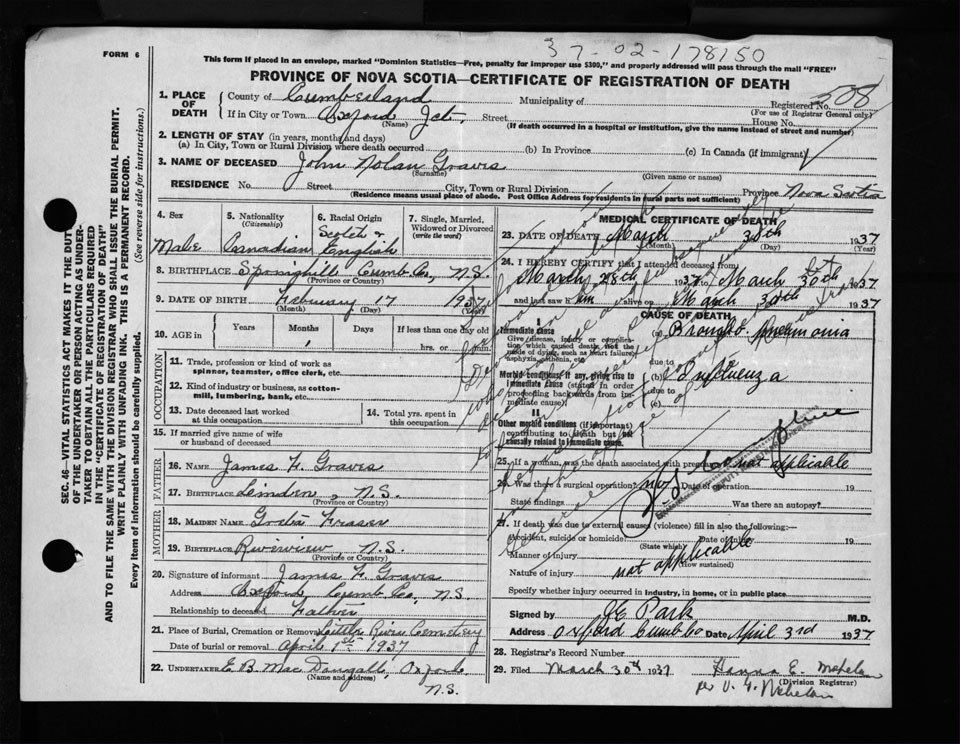 37-02-178150
FORM 6
This form if placed in an envelope, marked "Dominion Statistics—Free, penalty for improper use $300," and properly addressed will pass through the mail "FREE"
PROVINCE OF NOVA SCOTIA—CERTIFICATE OF REGISTRATION OF DEATH
SEC. 46—VITAL STATISTICS ACT MAKES IT THE DUTY
OF THE UNDERTAKER OR PERSON ACTING AS UNDER-
TAKER TO OBTAIN ALL THE PARTICULARS REQUIRED
IN THE "CERTIFICATE OF REGISTRATION OF DEATH"
AND TO FILE THE SAME WITH THE DIVISION REGISTRAR WHO SHALL ISSUE THE BURIAL PERMIT.
WRITE PLAINLY WITH UNFADING INK. THIS IS A PERMANENT RECORD.
Every item of information should be carefully supplied. (See reverse side for instructions.)
1. PLACE OF DEATH
County of Cumberland Municipality of Registered No. 508
(For use of Registrar General only)
If in City or Town Oxford Jct, Street House No.
(Name) (If death occurred in a hospital or institution, give the name instead of street and number)
2. LENGTH OF STAY (in years, months and days)
(a) In City, Town or Rural Division where death occurred (b) In Province (c) In Canada (if immigrant)
3. NAME OF DECEASED John Nolan Graves
(Surname) (Given name or names)
RESIDENCE No. Street City, Town or Rural Division Province Nova Scotia
(Residence means usual place of abode. Post Office Address for residents in rural parts not sufficient)
4. Sex 5. Nationality (Citizenship) 6. Racial Origin 7. Single, Married, Widowed or Divorced (write the word)
Male Canadian Scotch & English
8. BIRTHPLACE Springhill Cumb Co., N.S.
(Province or Country)
9. DATE OF BIRTH February 17 1937
(Month) (Day) (Year)
10. AGE in Years Months Days If less than one day old
1 hrs. or min.
OCCUPATION
11. Trade, profession or kind of work as spinner, teamster, office clerk, etc.
12. Kind of industry or business, as cotton-mill, lumbering, bank, etc.
13. Date deceased last worked at this occupation 14. Total yrs. spent in this occupation
15. If married give name of wife or husband of deceased
FATHER
16. NAME James H. Graves
17. BIRTHPLACE Linden, N.S.
(Province or Country)
MOTHER
18. MAIDEN NAME Greta Fraser
19. BIRTHPLACE Riverview, N.S.
(Province or Country)
20. Signature of informant James H Graves
Address Oxford, Cumb Co, N.S.
Relationship to deceased Father
21. Place of Burial, Cremation or Removal Little River Cemetery
Date of burial or removal April 1st 1937
22. UNDERTAKER E B MacDougall, Oxford
(Name and address) N.S.
MEDICAL CERTIFICATE OF DEATH
23. DATE OF DEATH March 30th 1937
(Month) (Day) (Year)
24. I HEREBY CERTIFY that I attended deceased from
March 28th 1937 to March 30th 1937
and last saw him alive on March 30th 1937
CAUSE OF DEATH
I
Immediate cause (a) Broncho-Pneumonia
Give disease, injury or complication which caused death, not the mode of dying, such as heart failure, asphyxia, asthenia, etc. due to
Morbid conditions, if any, giving rise to immediate cause (stated in order proceeding backwards from immediate cause). (b) Influenza
due to
(c)
II
Other morbid conditions (if important) contributing to death but not causally related to immediate cause.
25. If a woman, was the death not applicable
26. Was there a surgical operation? no Date of operation 19
State findings Was there an autopsy?
27. If death was due to external causes (violence) fill in also the following:—
Accident, suicide or homicide? Date of injury 19
(State which)
Manner of injury not applicable
(How sustained)
Nature of injury
Specify whether injury occurred in industry, in home, or in public place
Signed by J E Park M.D.
Address Oxford Cumb Co Date April 3rd 1937
28. Registrar's Record Number
29. Filed March 30th 1937 Hanna E.
(Division Registrar)